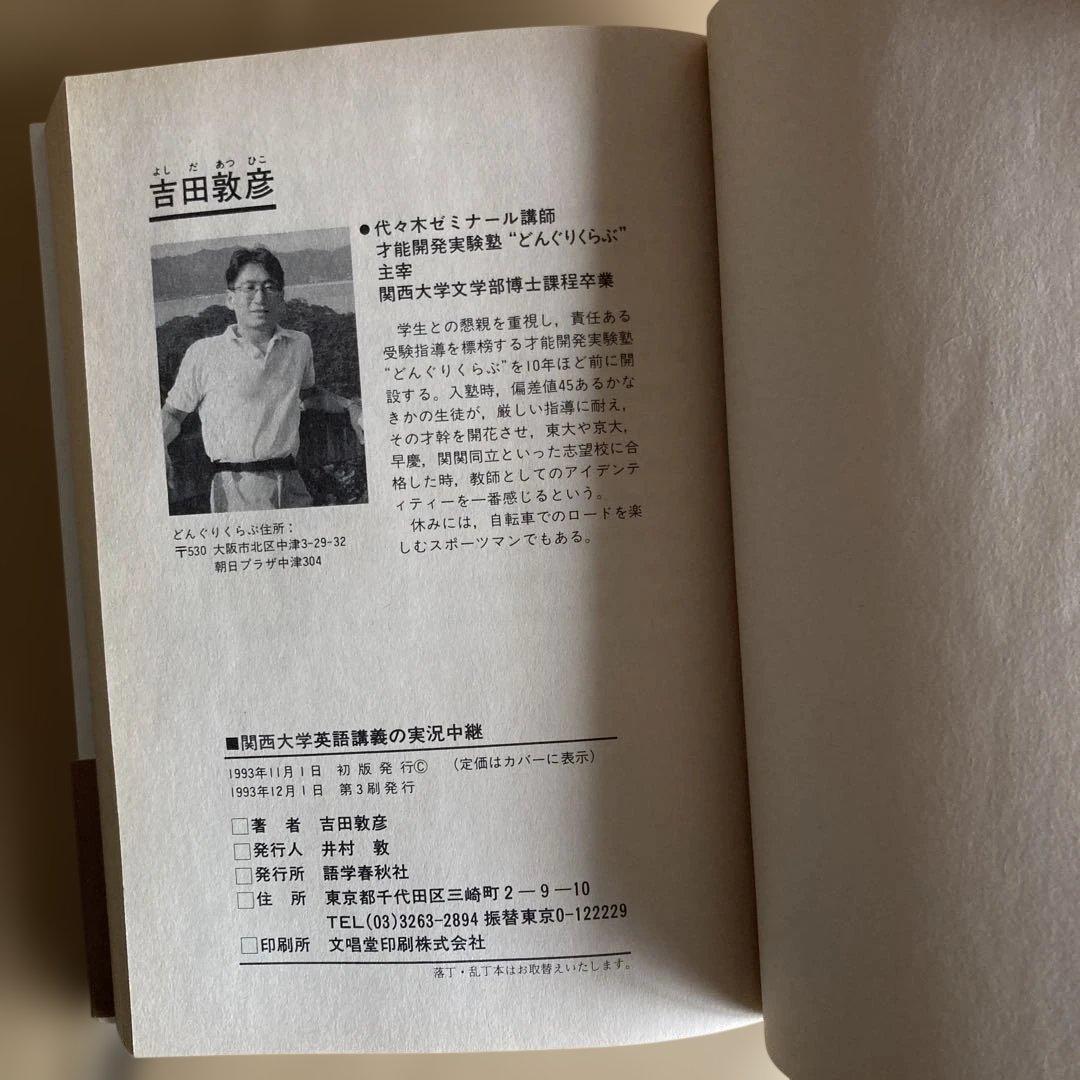 よしだあつひこ
吉田敦彦
●代々木ゼミナール講師
才能開発実験塾“どんぐりくらぶ”
主宰
関西大学文学部博士課程卒業
学生との懇親を重視し，責任ある
受験指導を標榜する才能開発実験塾
“どんぐりくらぶ”を10年ほど前に開
設する。入塾時，偏差値45あるかな
きかの生徒が，厳しい指導に耐え，
その才幹を開花させ，東大や京大，
早慶，関関同立といった志望校に合
格した時，教師としてのアイデンテ
ィティーを一番感じるという。
休みには，自転車でのロードを楽
しむスポーツマンでもある。
どんぐりくらぶ住所：
〒530 大阪市北区中津3-29-32
朝日プラザ中津304
■関西大学英語講義の実況中継
1993年11月1日 初版発行© （定価はカバーに表示）
1993年12月1日 第3刷発行
□著 者 吉田敦彦
□発行人 井村 敦
□発行所 語学春秋社
□住 所 東京都千代田区三崎町2―9―10
TEL(03)3263-2894 振替東京0-122229
□印刷所 文唱堂印刷株式会社
落丁・乱丁本はお取替えいたします。